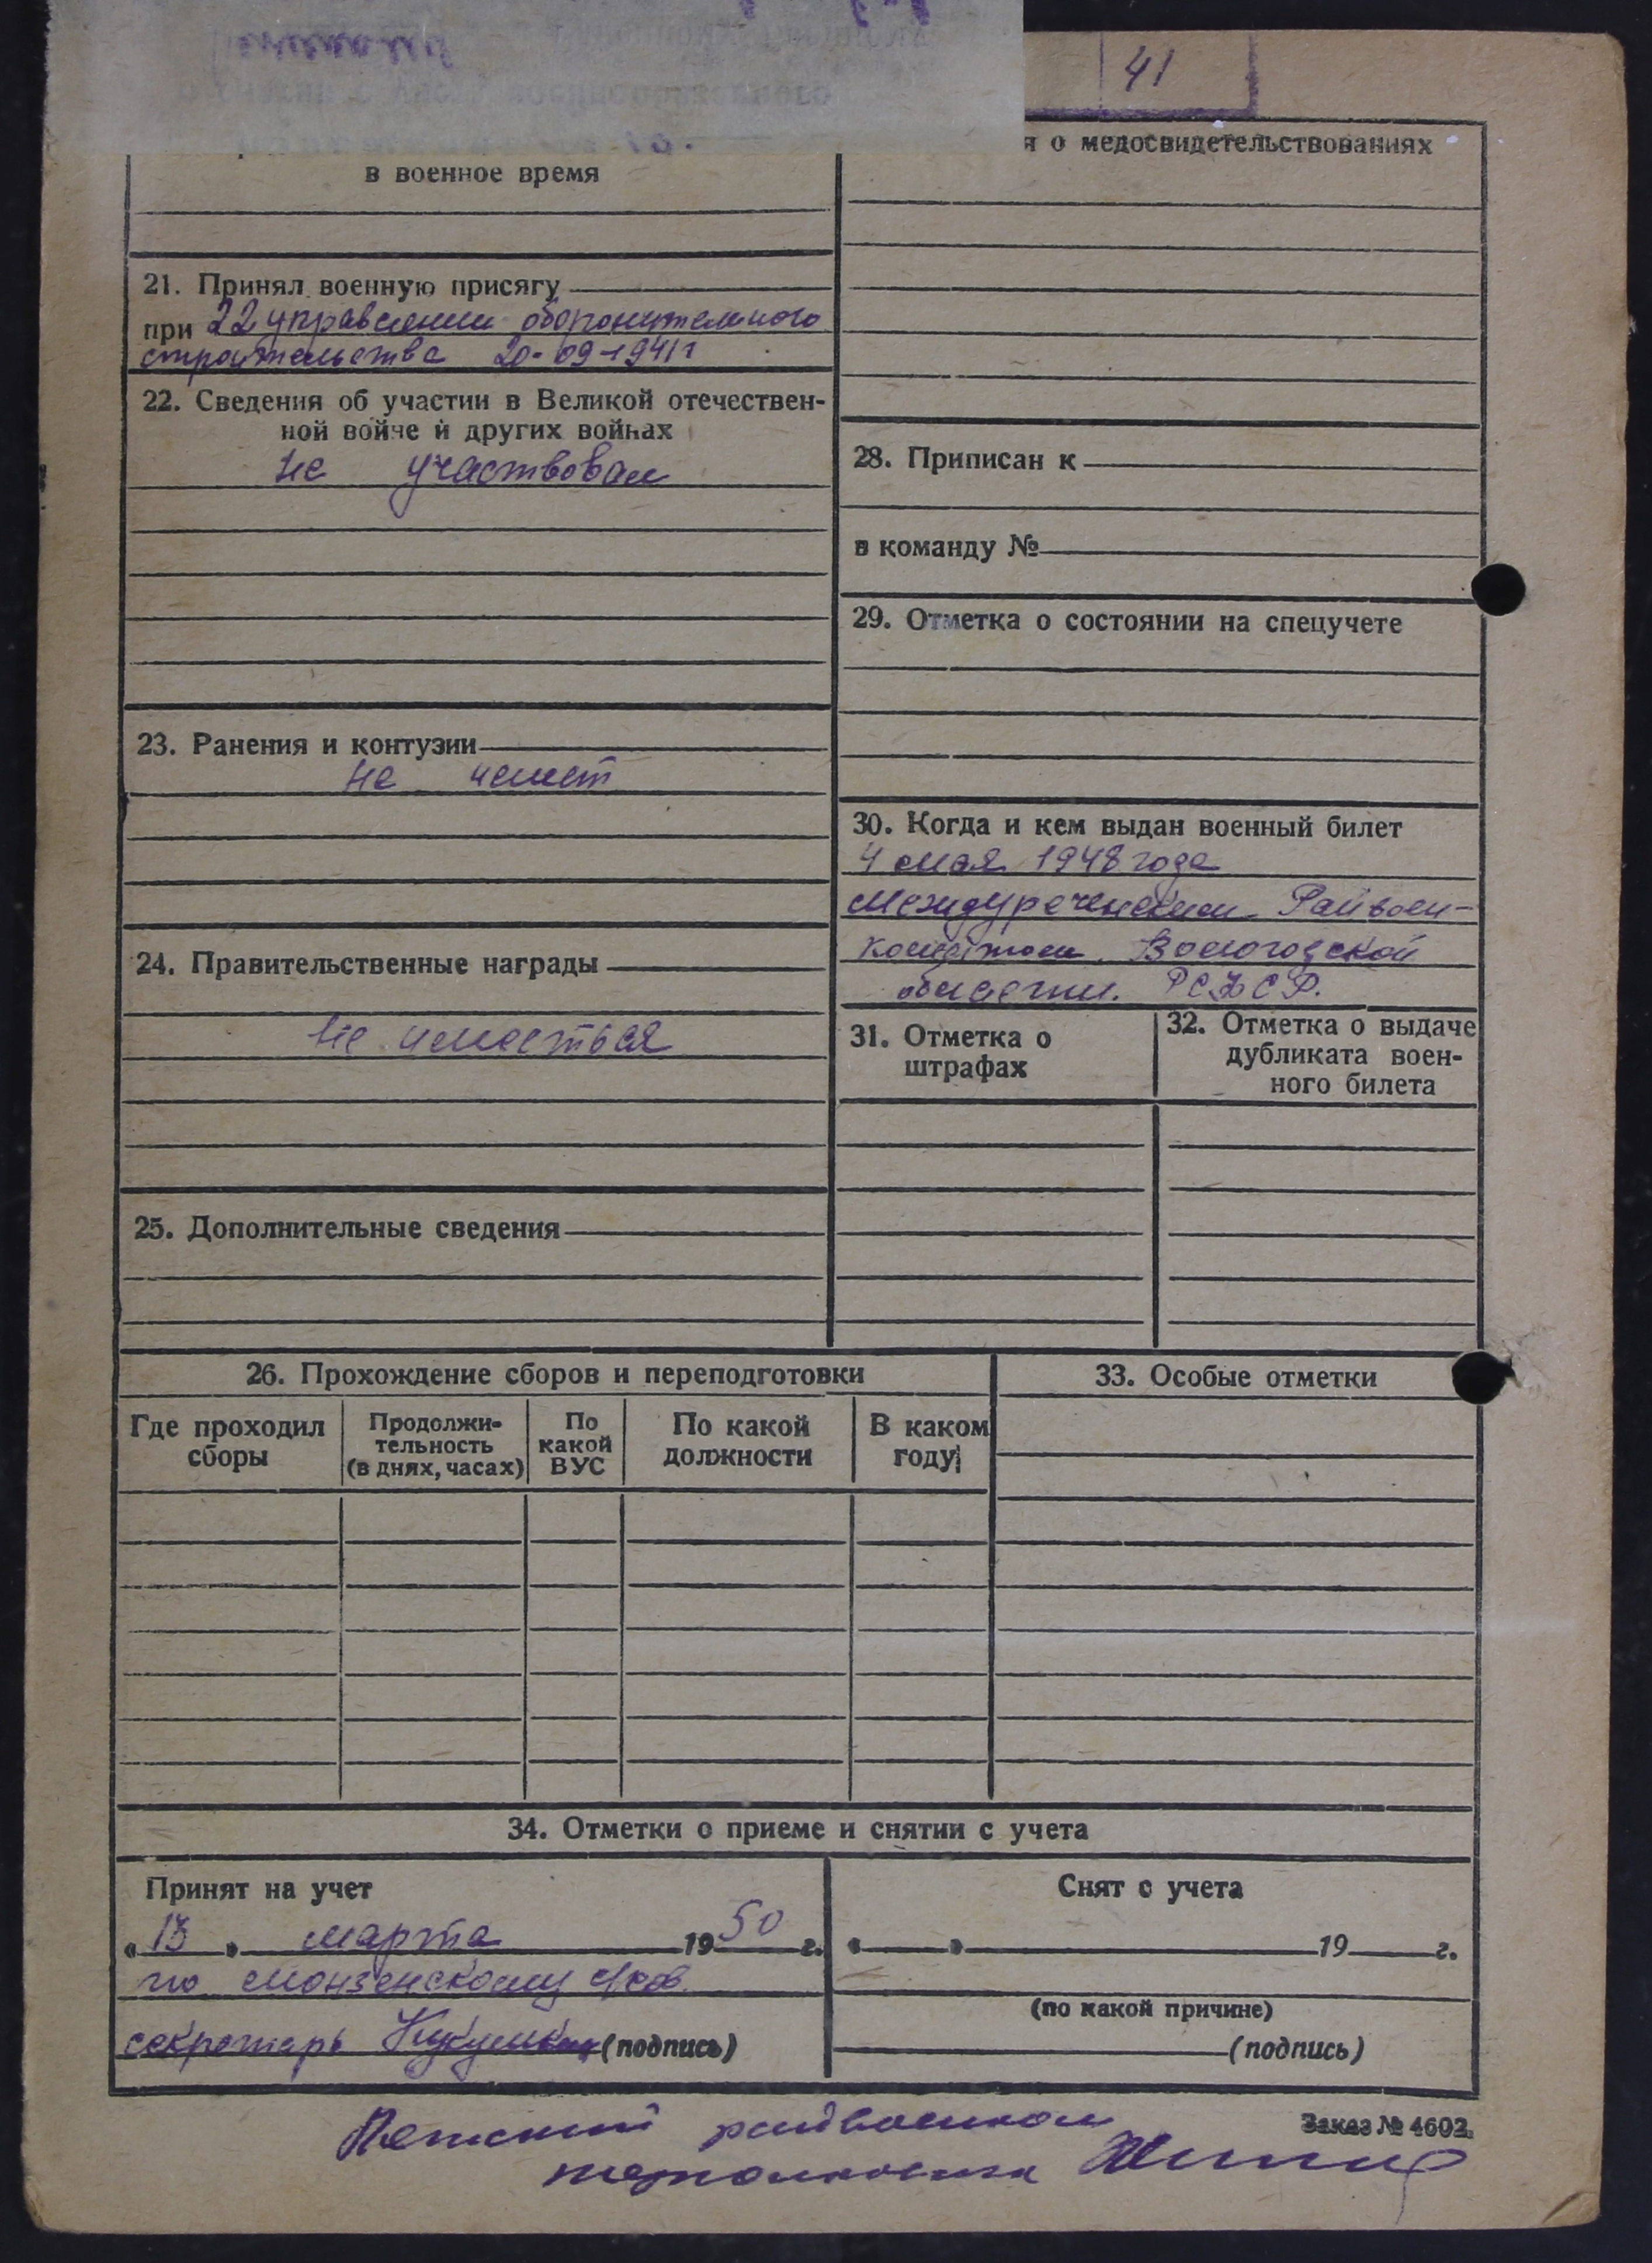 41
в военное время
21. Принял военную присягу
при 22 управлении оборонительного
строительства 20-09-1941г
22. Сведения об участии в Великой отечествен-
ной войне и других войнах
не участвовал
23. Ранения и контузии
не имеет
24. Правительственные награды
не имееться
25. Дополнительные сведения
я о медосвидетельствованиях
28. Приписан к
в команду №
29. Отметка о состоянии на спецучете
30. Когда и кем выдан военный билет
4 мая 1948 года
Междуреченским Райвоен-
коматом Вологодской
области. РСФСР.
31. Отметка о
штрафах
32. Отметка о выдаче
дубликата воен-
ного билета
26. Прохождение сборов и переподготовки
Где проходил
сборы
Продолжи-
тельность
(в днях, часах)
По
какой
ВУС
По какой
должности
В каком
году
33. Особые отметки
34. Отметки о приеме и снятии с учета
Принят на учет
«13» марта 1950 г.
по Монзенскому
секретарь (подпись)
Снят с учета
« » 19 г.
(по какой причине)
(подпись)
Заказ № 4602.
райвоенком